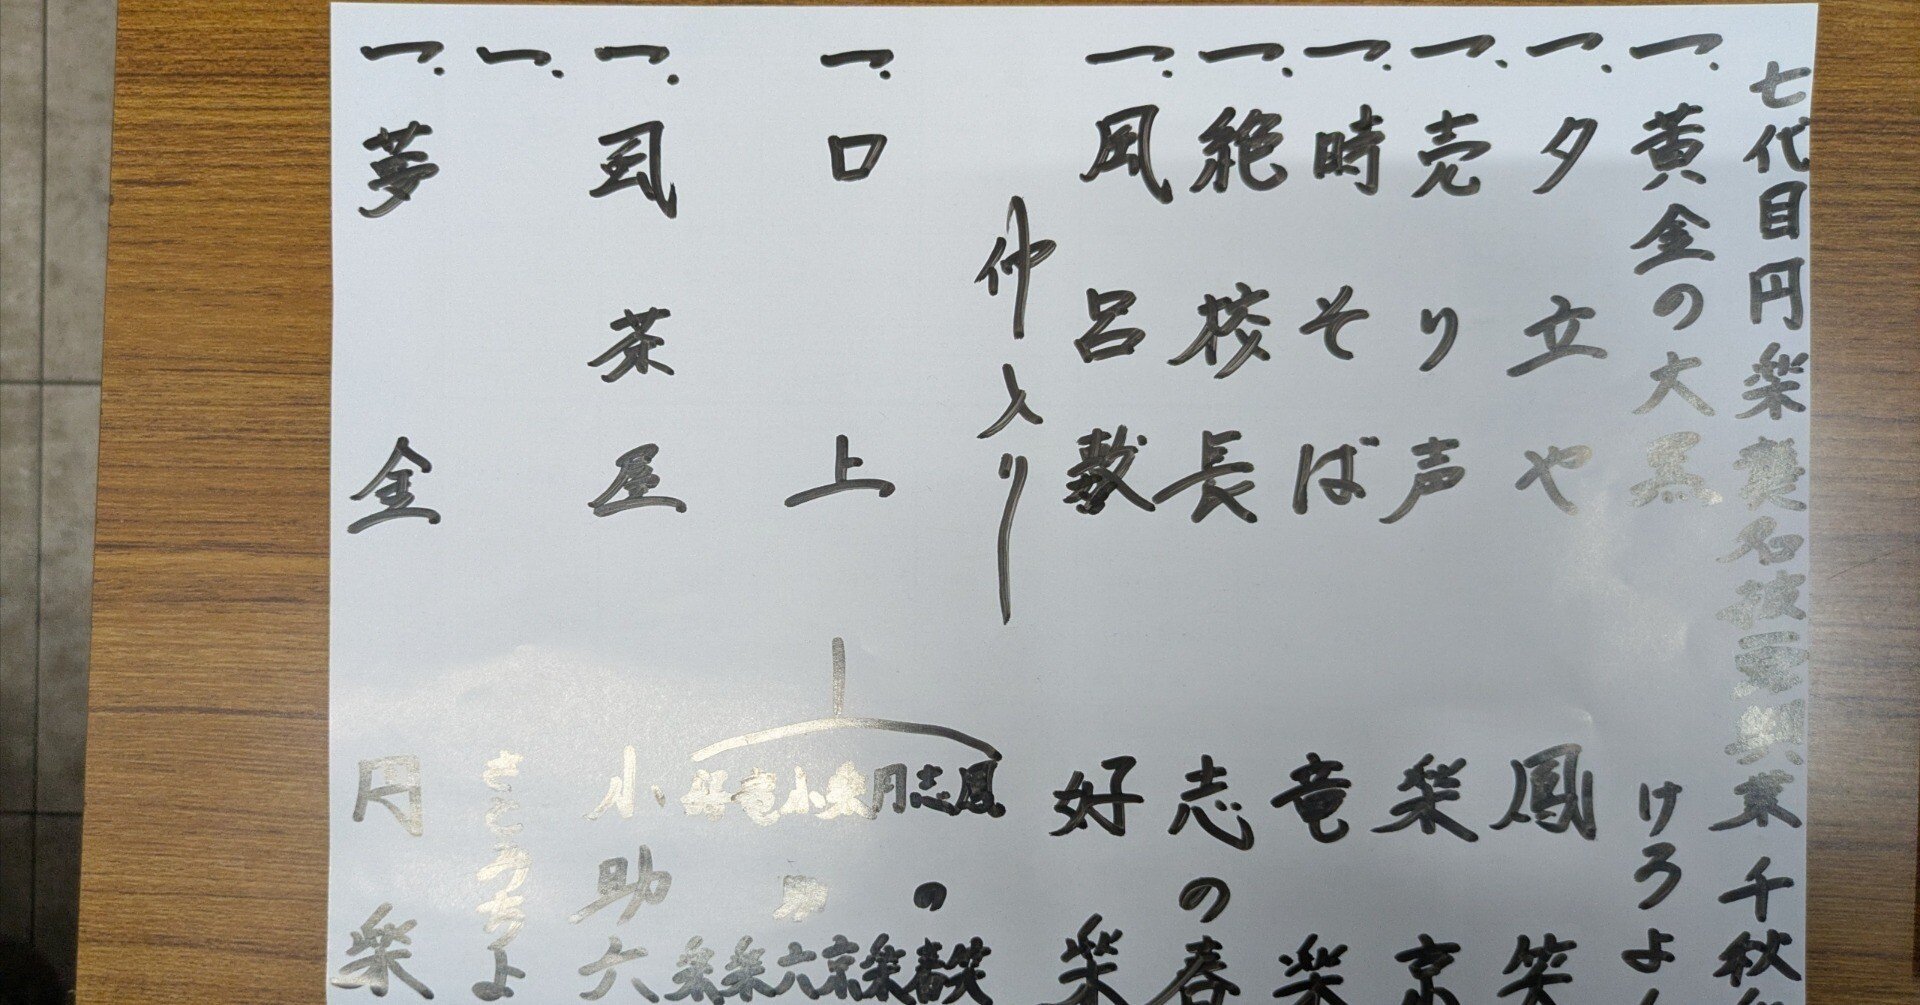 七代目円楽襲名披露興業 千秋
一. 黄金の大黒 けろよ
一. 夕立や 鳳笑
一. 売り声 楽京
一. 時そば 竜楽
一. 絶校長 志の春
一. 風呂敷 好楽
仲入り
一. 口上 鳳笑 志の春 円楽 楽京 小助六 竜楽 好楽
一. 凮茶屋 小助六
一. さとうちよ
一. 夢金 円楽